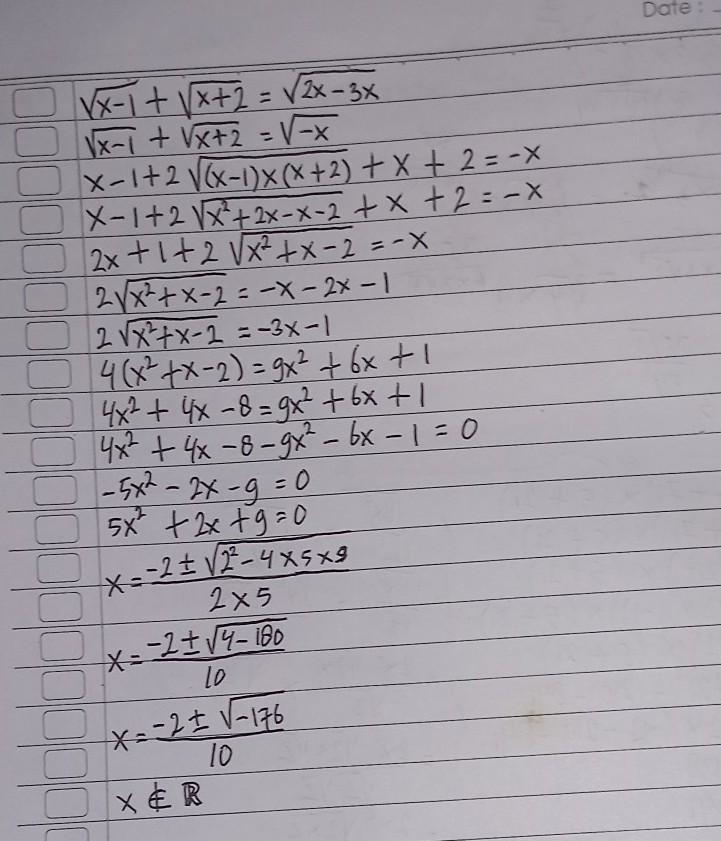 Date :
√x-1 + √x+2 = √2x-3x
√x-1 + √x+2 = √-x
x-1+2√(x-1)x(x+2) + x + 2 = -x
x-1+2√x²+2x-x-2 + x + 2 = -x
2x+1+2√x²+x-2 = -x
2√x²+x-2 = -x-2x-1
2√x²+x-2 = -3x-1
4(x²+x-2) = 9x²+6x+1
4x²+4x-8 = 9x²+6x+1
4x²+4x-8-9x²-6x-1 = 0
-5x²-2x-9 = 0
5x²+2x+9=0
x = -2±√2²-4×5×9 / 2×5
x = -2±√4-180 / 10
x = -2±√-176 / 10
x ∉ ℝ